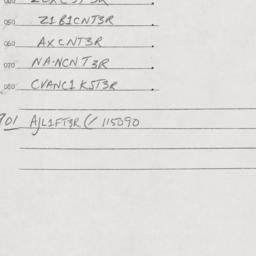 050 Z1B1CNT3R.
060 AXCNT3R.
070 NA-NCNT3R.
080 CVANC1KST3R.
701 AJL1FT3R(/ 115090